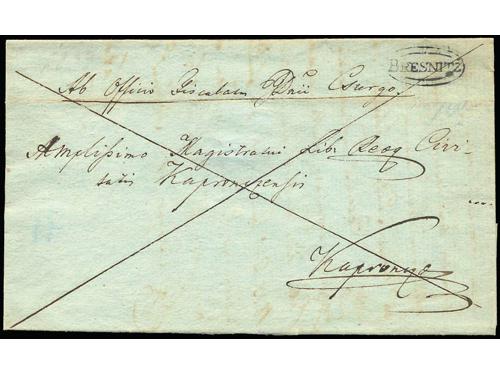 BRESNITZ
Ab Officio Fiscalam Csurgo.
Amplissimo Magistratui Lib. Reaq Civi-
tatis Kapronczensis
Kaproncza